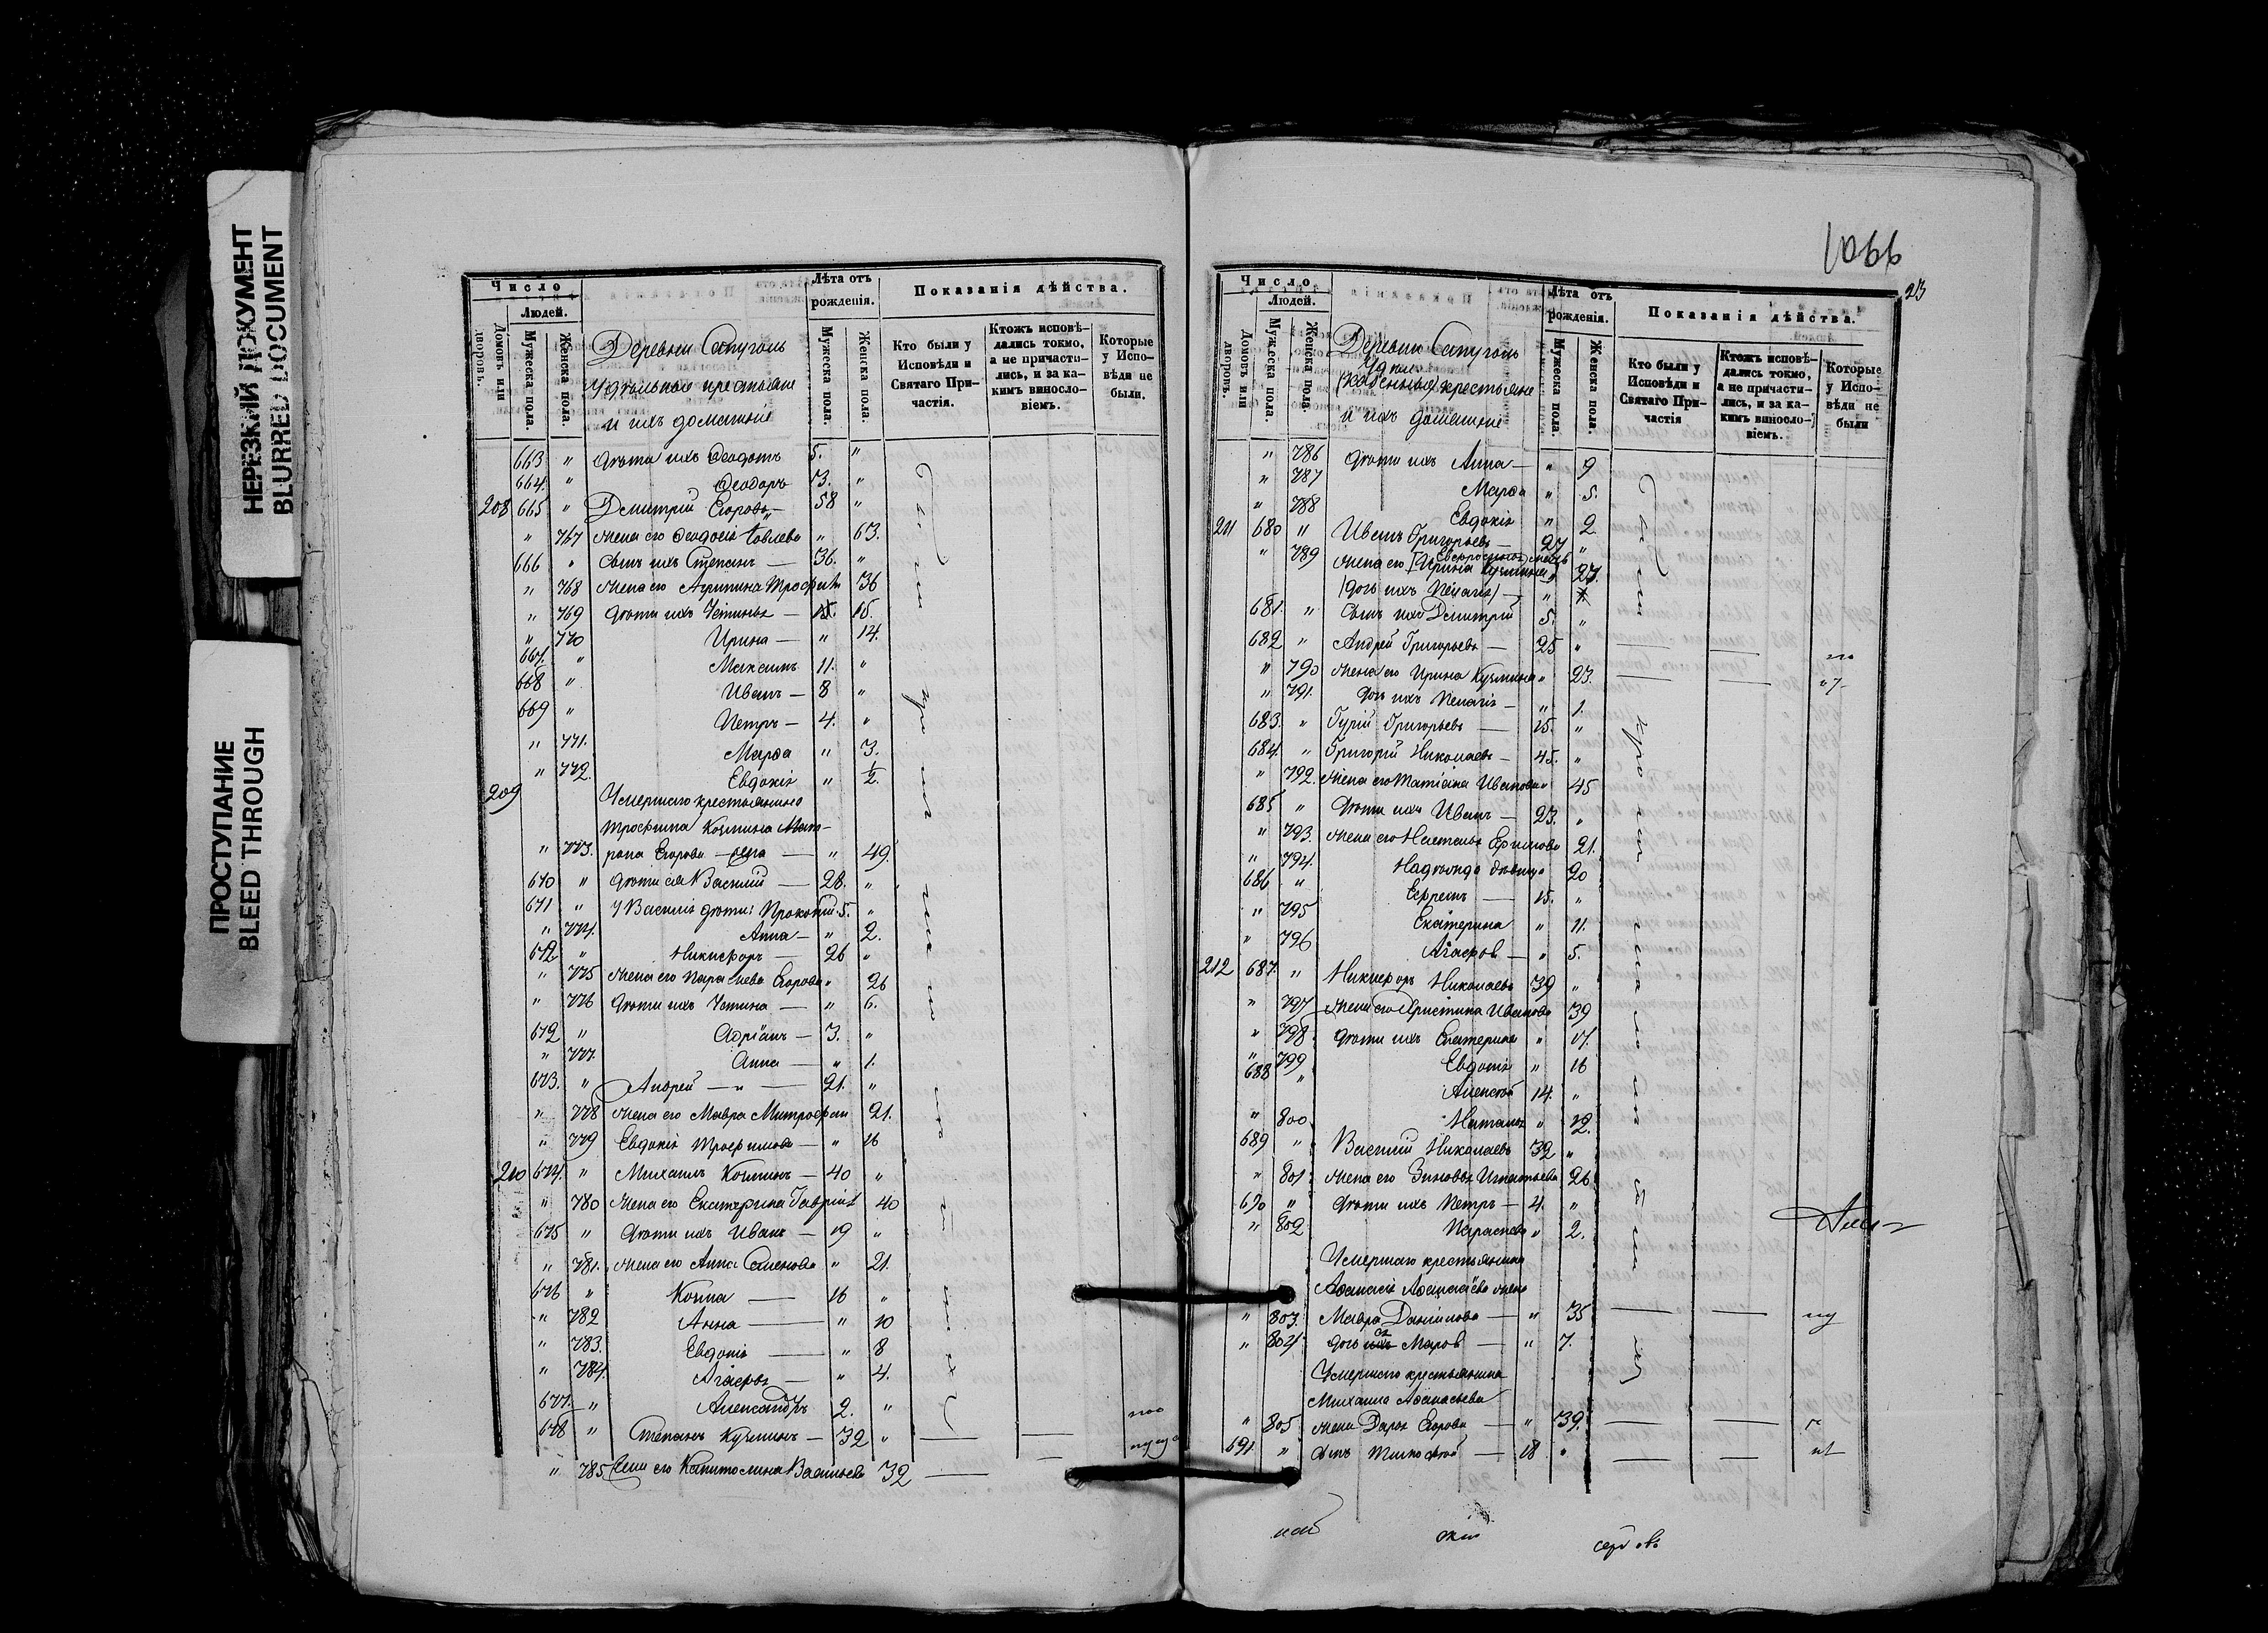 НЕРЕЗКИЙ ДОКУМЕНТ
BLURRED DOCUMENT
ПРОСТУПАНИЕ
BLEED THROUGH
Число
Людей.
Домовъ или дворовъ.
Мужеска пола.
Женска пола.
Деревни Сапуголь
Удѣльные крестьяне
и ихъ домашніе
Лѣта отъ рожденія.
Мужеска пола.
Женска пола.
Показанія дѣйства.
Кто были у Исповѣди и Святаго Причастія.
Ктожъ исповѣдались токмо, а не причастились, и за какимъ винословіемъ.
Которые у Исповѣди не были.
663 " Дѣти ихъ Ѳеодотъ 5. "
664. " Ѳеодоръ 3. "
208 665 " Дмитрій Егоровъ 58 "
" 767 Жена его Ѳеодосія " 63.
666 " Сынъ ихъ Степанъ — 36. "
" 768 Жена его Агрипина Трофим 36
" 769 Дѣти ихъ Устинья — 15.
" 770 Ирина — " 14.
667. " Максимъ 11. "
668 " Иванъ — 8 "
669 " Петръ — 4. "
" 771. Марѳа " 3.
" 772. Евдокія " 1/2.
209 Умершаго крестьянина
Трофима Козмина Мат-
" 773. рона Егорова — жена — " 49.
670 " Дѣти ея Василій — 28. "
671 " У Василія дѣти: Прокопій 5. "
" 774. Анна — " 2.
672 " Никифоръ — 26 "
" 775 Жена его Параскева Егорова " 26
" 776 Дѣти ихъ Устина — " 6.
672 " Адріанъ — 3. "
" 777. Анна — " 1.
673. " Андрей — " — 21. "
" 778 Жена его Мавра Митрофан 21.
" 779 Евдокія Трофимова — " 16
210 674. " Михаилъ Козминъ — 40 "
" 780 Жена его Екатерина Гавріил 40
675 " Дѣти ихъ Иванъ — 19 "
" 781. Жена его Анна Семенова " 21.
676 " Козма — 16 "
" 782 Анна — " 10
" 783. Евдокія — " 8
" 784. Агаѳья — " 4.
677. " Александръ 2. "
678 " Степанъ Кузминъ — 32 " — —
" 785 Жена его Капитолина Васильева 32 — —
1066
23
Число
Людей.
Домовъ или дворовъ.
Мужеска пола.
Женска пола.
Деревни Сапуголь
Удѣл.
(Казенные) крестьяне
и ихъ домашніе
Лѣта отъ рожденія.
Мужеска пола.
Женска пола.
Показанія дѣйства.
Кто были у Исповѣди и Святаго Причастія
Ктожъ исповѣдались токмо, а не причастились, и за какимъ винословіемъ.
Которые у Исповѣди не были
" 786 Дѣти ихъ Анна — " 9
" 787 Марѳа " 5.
" 788 Евдокія " 2
211 680 " Иванъ Григорьевъ — 27 "
" 789 Жена его (Ирина Кузмина) " 27.
(дочь ихъ Пелагія) — "
681. " Сынъ ихъ Дмитрій 5. "
682 " Андрей Григорьевъ — 25 " — —
" 790 Жена его Ирина Кузмина " 23. — —
" 791. Дочь ихъ Пелагія — " 1.
683. " Гурій Григорьевъ — 15. "
684. " Григорій Николаевъ — 45. "
" 792. Жена его Татіана Иванова " 45
685 " Дѣти ихъ Иванъ — 23. "
" 793. Жена его Наталья Ефимова 21.
" 794. Надежда дѣвица 20
686 " Ефремъ — 15. "
" 795 Екатерина " 11.
" 796 Агаѳья — " 5.
212 687. " Никифоръ Николаевъ 39 "
" 797 Жена его Христина Иванова 39
" 798 Дѣти ихъ Екатерина " 17.
" 799 Евдокія " 16
688 " Алексѣй 14. "
" 800 Наталья " 12.
689 " Василій Николаевъ 32 "
" 801 Жена его Зиновья Игнатьева 26
690 " Дѣти ихъ Петръ — 4. "
" 802 Параскева " 2.
Умершаго крестьянина
Аѳанасія Аѳанасьева жена
" 803. Мавра Данилова — " 35 — —
" 804 дочь ея Марѳа — " 7.
Умершаго крестьянина
Михаила Аѳанасьева
" 805 жена Дарья Егорова — " 39. — —
691 " сынъ Тимоѳей — 18 " — —